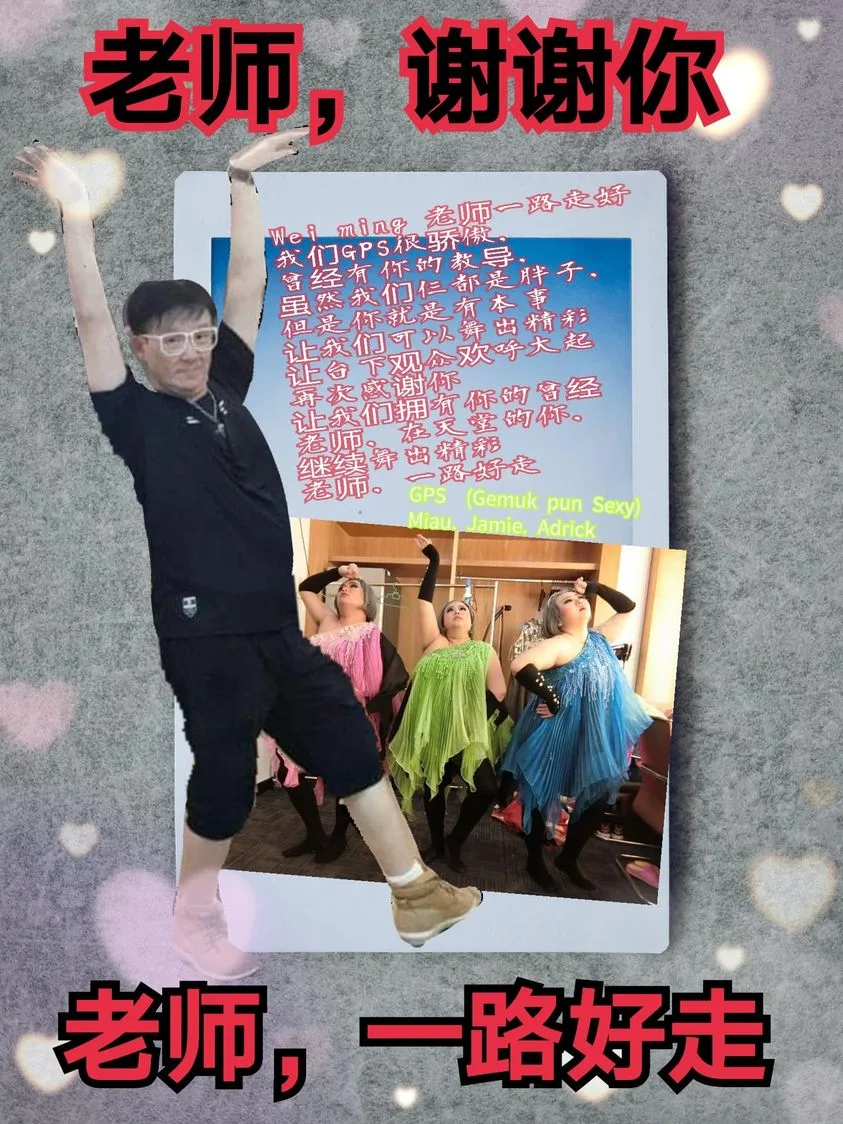 老师，谢谢你
Wei ming 老师一路走好
我们GPS很骄傲，
曾经有你的教导，
虽然我们仨都是胖子，
但是你就是有本事
让我们可以舞出精彩
让台下观众欢呼大起
再次感谢你
让我们拥有你的曾经
老师，在天堂的你，
继续舞出精彩
老师，一路好走
GPS (Gemuk pun Sexy)
Miau, Jamie, Adrick
老师，一路好走